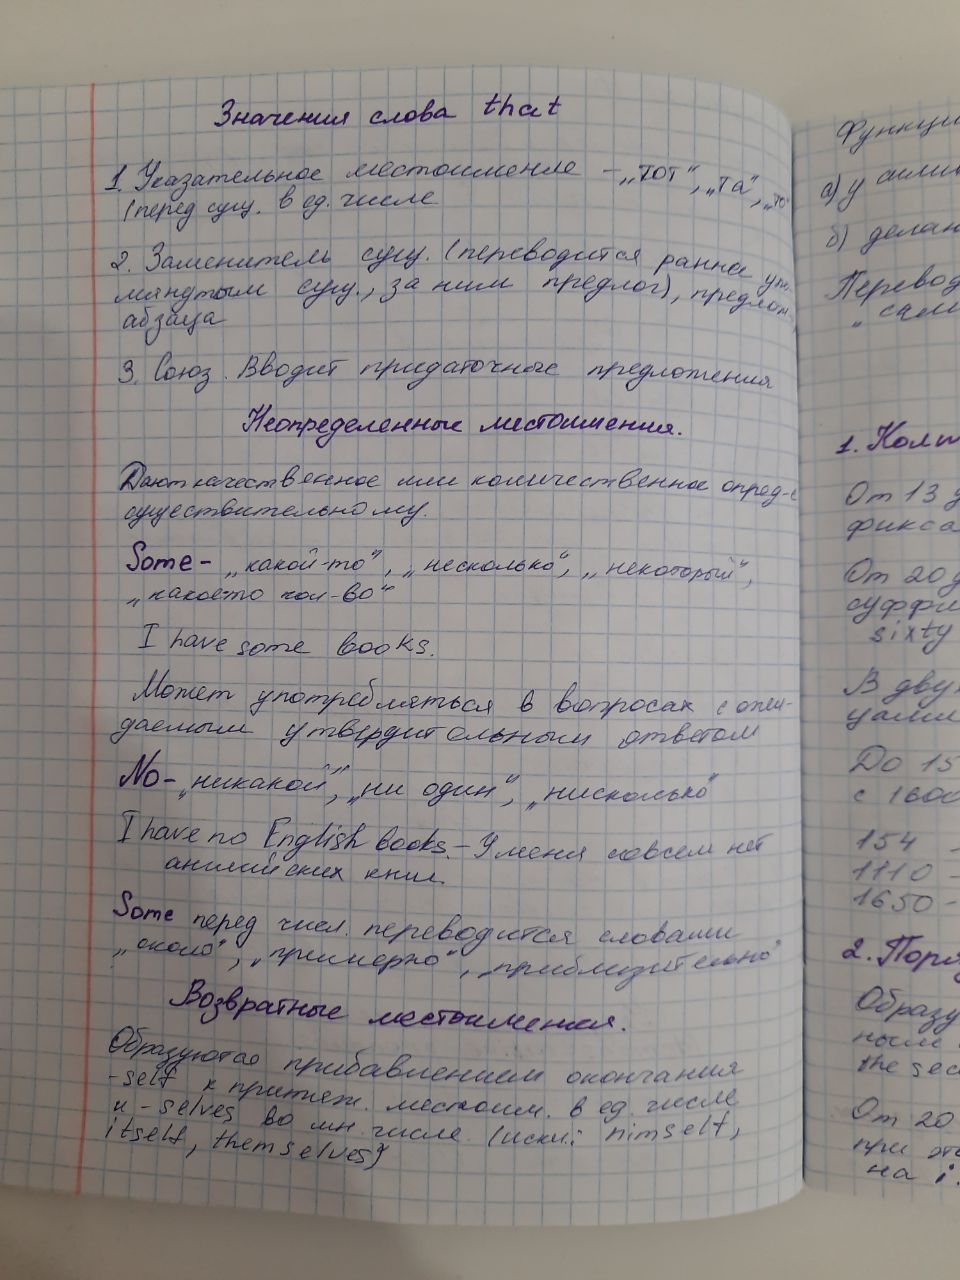 Значения слова that
1. Указательное местоимение – „тот", „та", „то"
(перед сущ. в ед. числе
2. Заменитель сущ. (переводится ранее упо-
мянутым сущ., за ним предлог),
абзаца
3. Союз. Вводит придаточные предложения
Неопределенные местоимения.
Дают качественное или количественное опред-е
существительному.
Some – „какой-то", „несколько", „некоторый",
„какое-то кол-во"
I have some books.
Может употребляться в вопросах с ожи-
даемым утвердительным ответом
No – „никакой", „ни один", „нисколько"
I have no English books. – У меня совсем нет
английских книг.
Some перед числ. переводится словами
„около", „примерно", „приблизительно"
Возвратные местоимения.
Образуются прибавлением окончания
-self к притяж. местоим. в ед. числе
и -selves во мн. числе (искл: himself,
itself, themselves)
Функции
а) у
б)
Перевод
„
1.
От 13
фикса
От 20
суффи
sixty
В двух
цами
До 15
с 1600
154 –
1110 –
1650 –
2. Поря
Образу
ным
the sec
От 20
при это
на i.